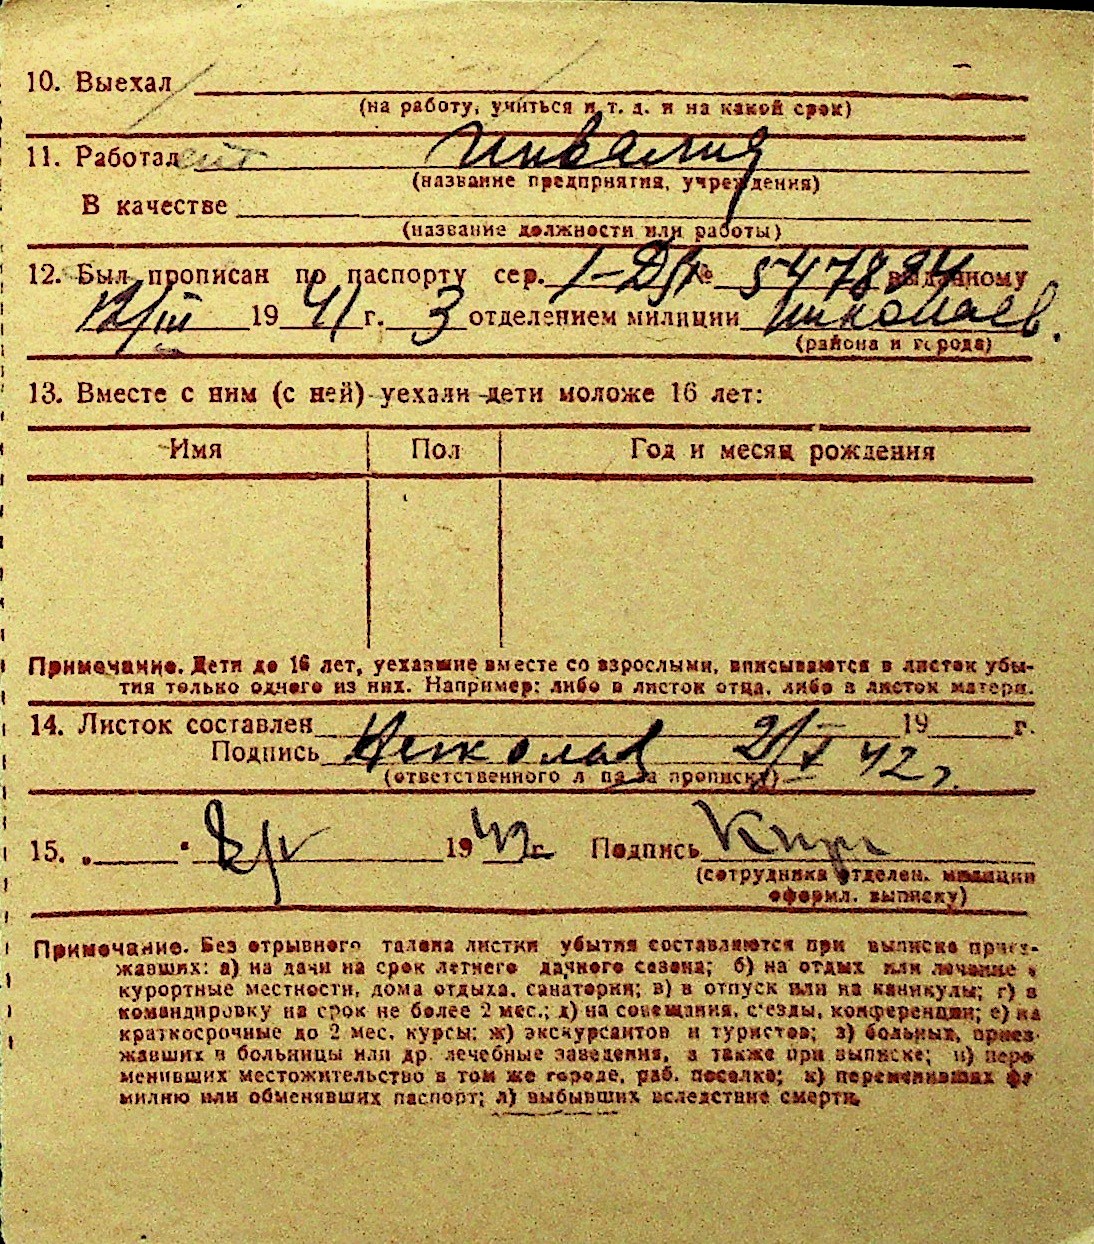 10. Выехал
(на работу, учиться и т. д. и на какой срок)
11. Работал инвалид
(название предприятия, учреждения)
В качестве
(название должности или работы)
12. Был прописан по паспорту сер. № 547894 выданному
12/III 1941 г. 3 отделением милиции Николаев.
(района и города)
13. Вместе с ним (с ней) уехали дети моложе 16 лет:
Имя Пол Год и месяц рождения
Примечание. Дети до 16 лет, уехавшие вместе со взрослыми, вписываются в листок убы-
тия только одного из них. Например: либо в листок отца, либо в листок матери.
14. Листок составлен 19 г.
Подпись 42 г.
(ответственного лица за прописку)
15. „ " 1942 г. Подпись
(сотрудника отделен. милиции
оформл. выписку)
Примечание. Без отрывного талона листки убытия составляются при выписке приез-
жавших: а) на дачи на срок летнего дачного сезона; б) на отдых или лечение в
курортные местности, дома отдыха, санатории; в) в отпуск или на каникулы; г) в
командировку на срок не более 2 мес.; д) на совещания, с'езды, конференции; е) на
краткосрочные до 2 мес. курсы; ж) экскурсантов и туристов; з) больных, приез-
жавших в больницы или др. лечебные заведения, а также при выписке; и) пере
менивших местожительство в том же городе, раб. поселке; к) переменивших фа
милию или обменявших паспорт; л) выбывших вследствие смерти.